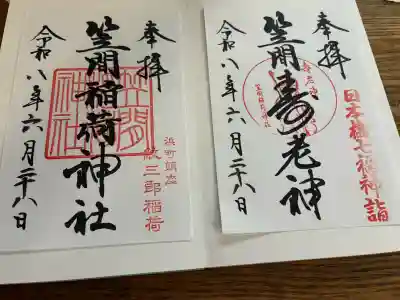 奉拝
日本橋七福神詣
笠間寿老神
令和八年六月二十八日
奉拝
浜町頭出
紋三郎稲荷
笠間稲荷神社
笠間
神社
令和八年六月二十八日